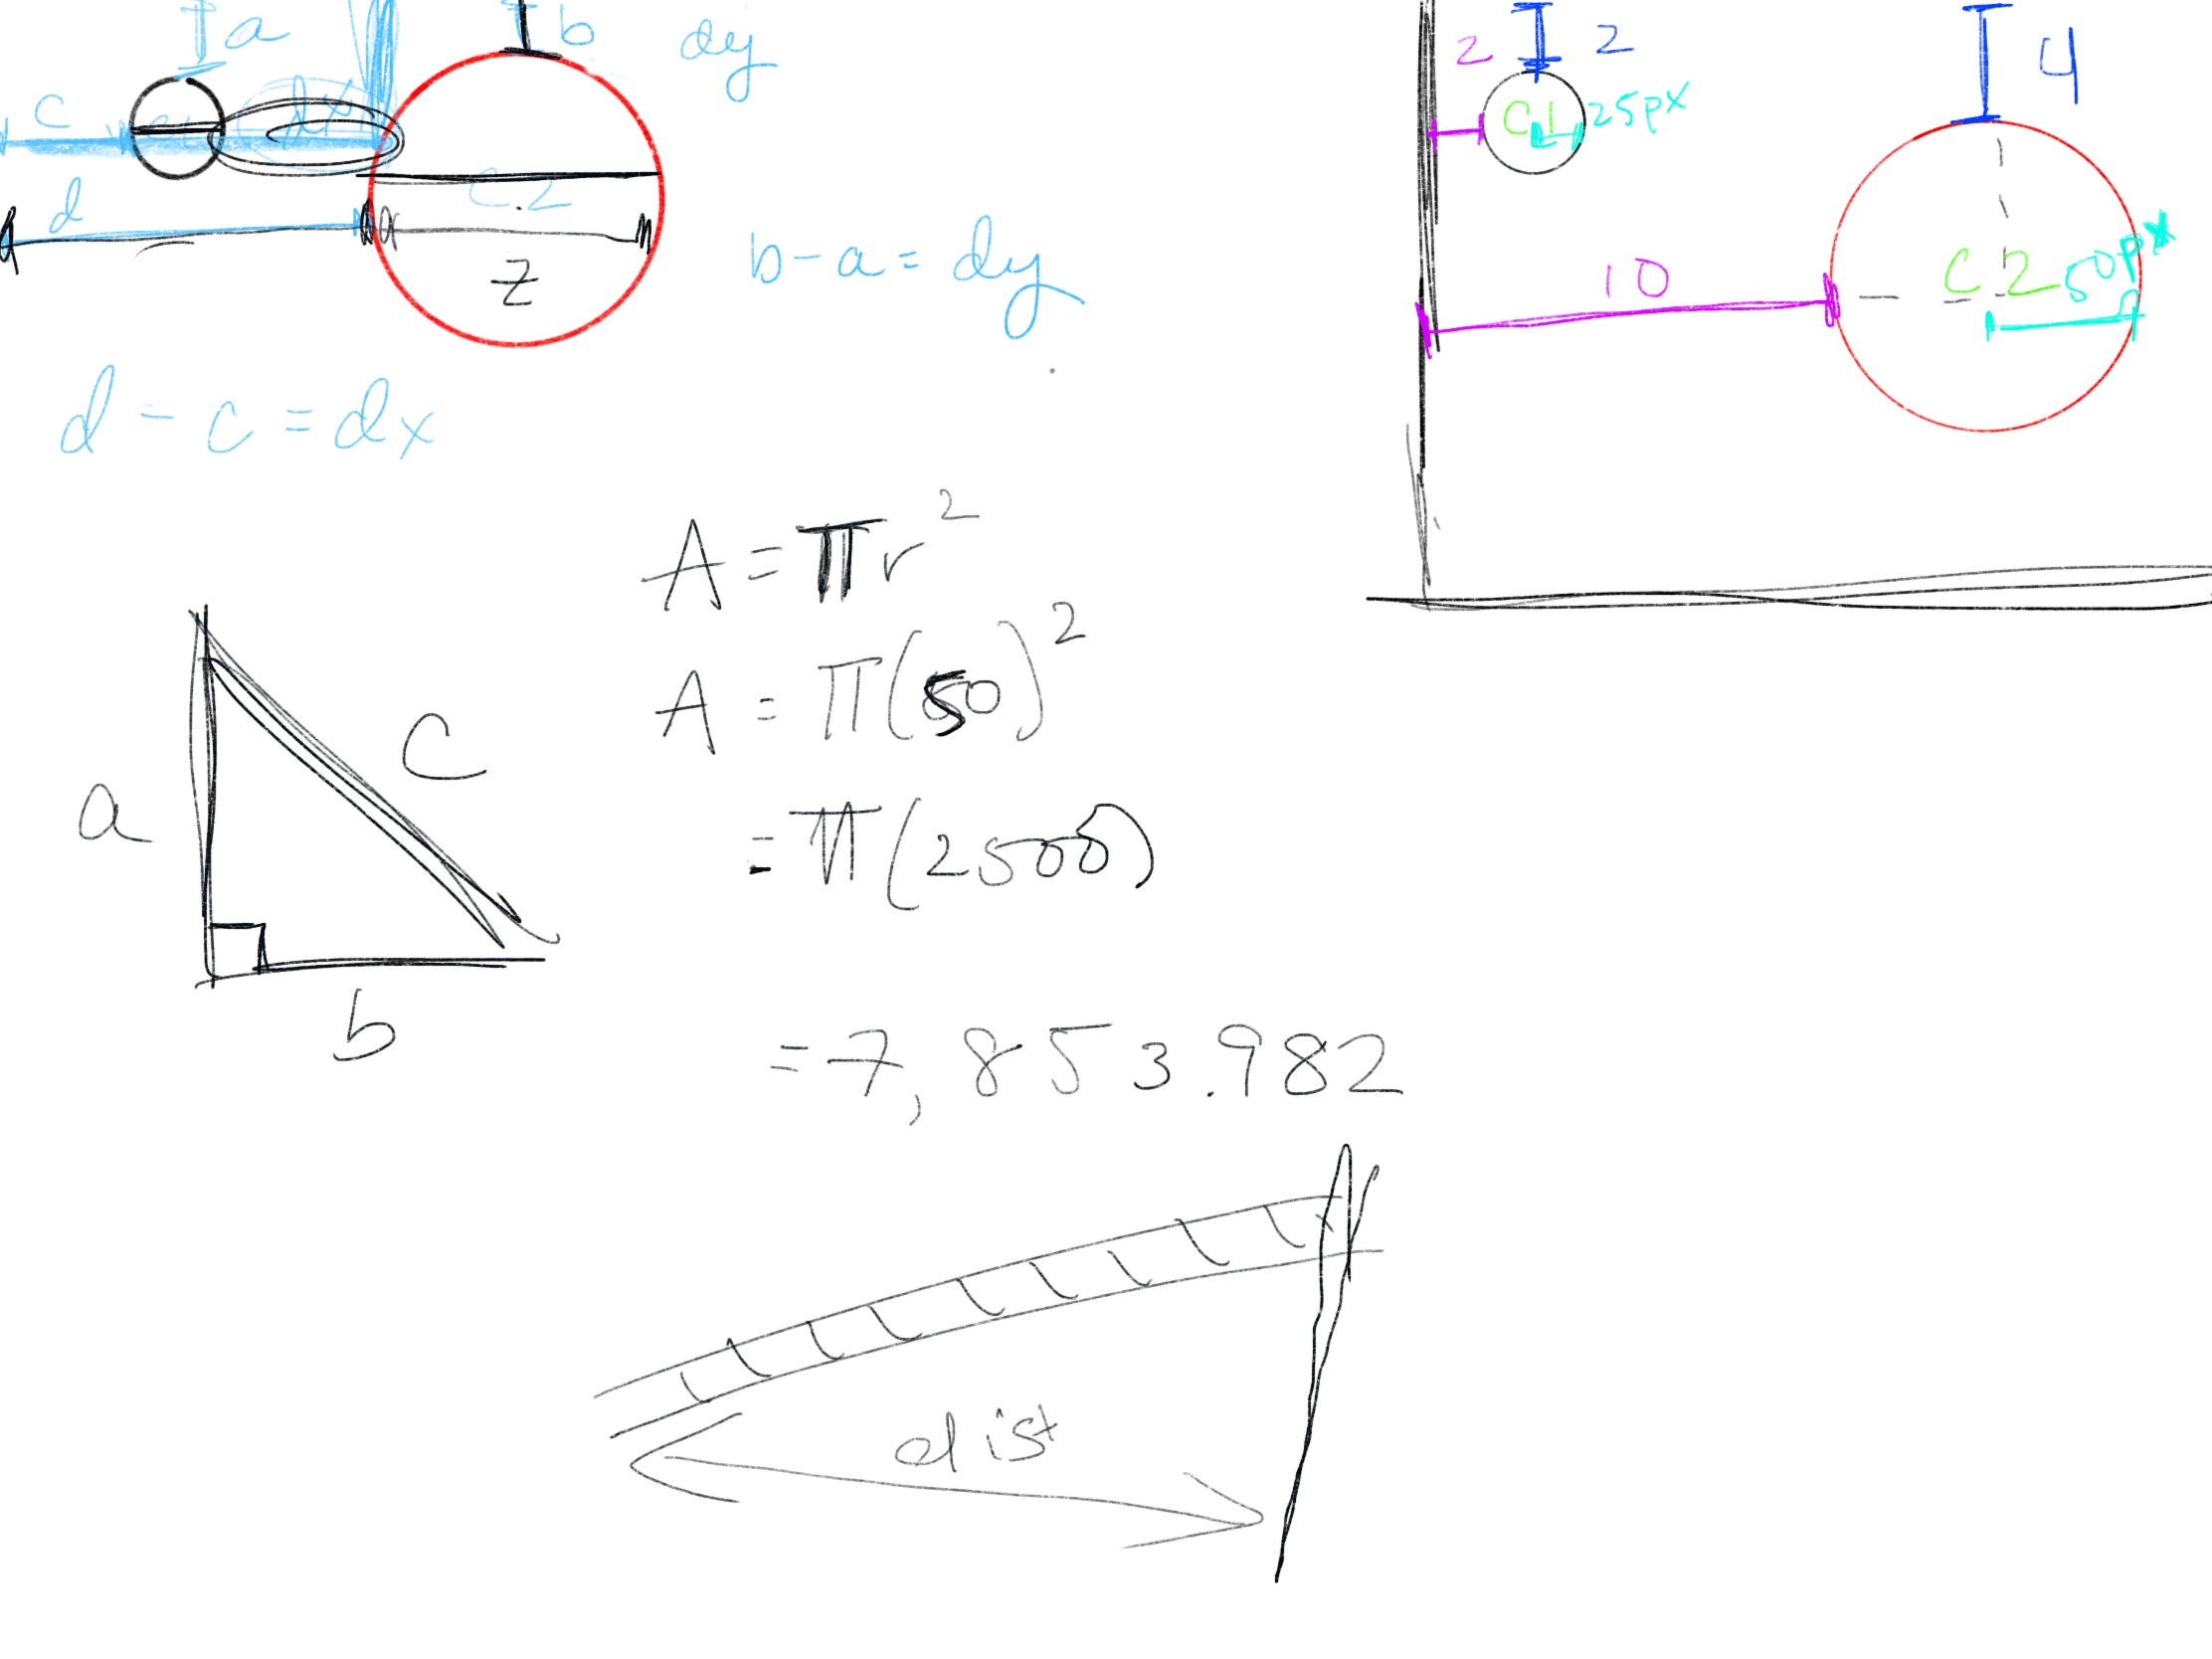 a
b
dy
c
dx
d
c.2
z
b - a = dy
d - c = dx
2
2
4
C.1
25px
10
C.2
50px
A = πr²
A = π(50)²
= π(2500)
= 7,853.982
a
c
b
dist